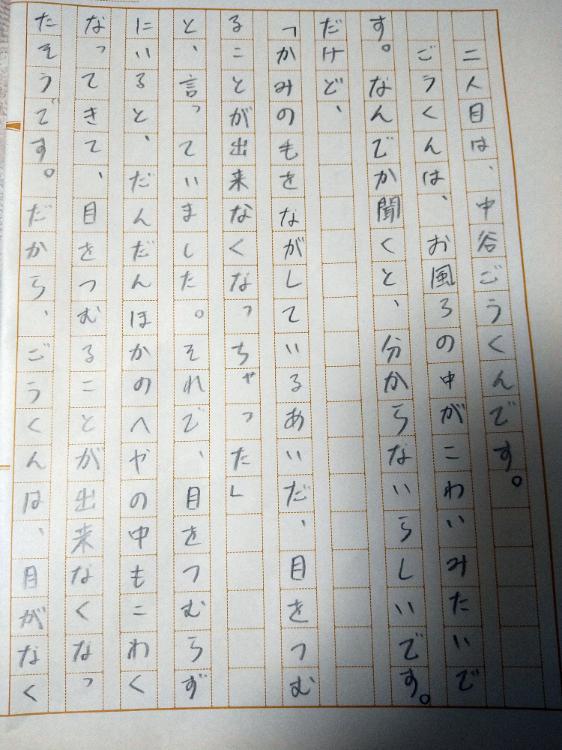 二人目は、中谷ごうくんです。
ごうくんは、お風ろの中がこわいみたいで
す。なんでか聞くと、分からないらしいです。
だけど、
「かみのもをながしているあいだ、目をつむ
ることが出来なくなっちゃった」
と、言っていました。それで、目をつむらず
にいると、だんだんほかのへやの中もこわく
なってきて、目をつむることが出来なくなっ
たそうです。だから、ごうくんは、目がなく